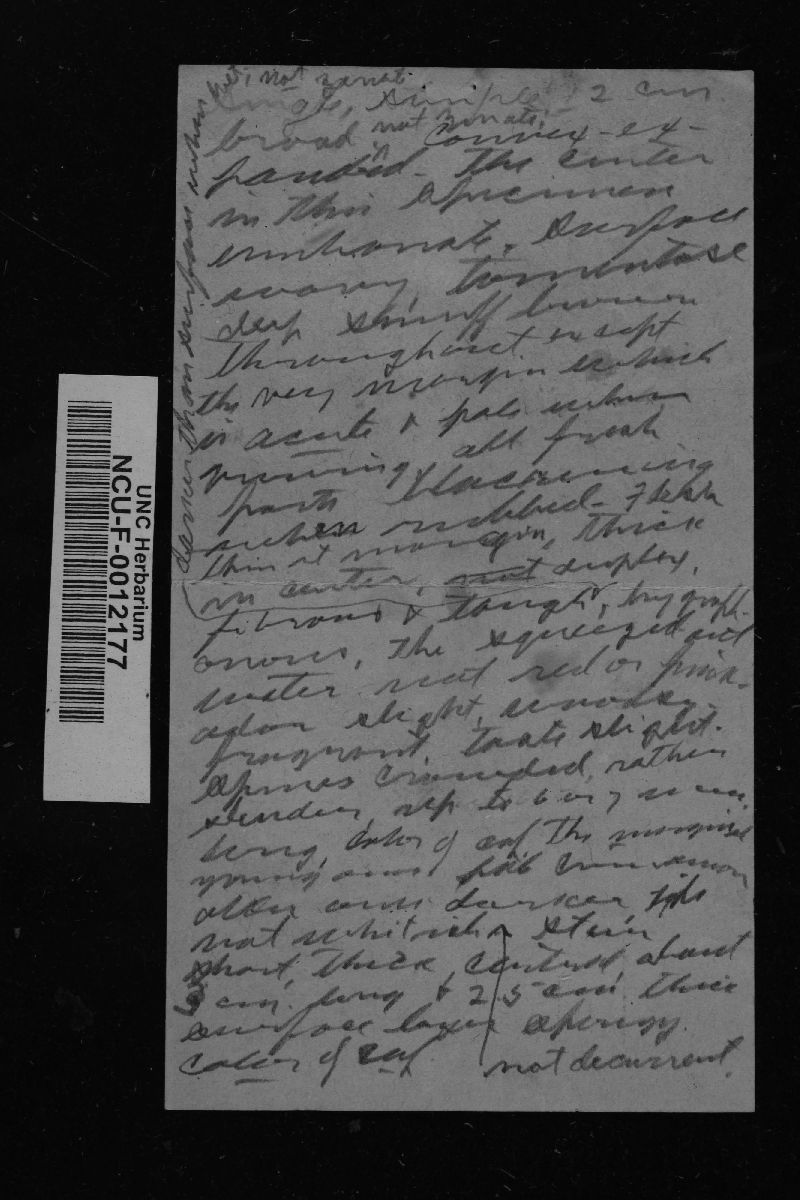 wet, not zonate
Single, simple, 12 cm
broad, not zonate, convex-ex-
panded. The center
in this specimen
umbonate. Surface
wavy, tomentose
deep snuff brown
throughout except
the very margin which
is acute & pale when
growing, all fresh
parts blackening
when rubbed. Flesh
thin at margin, thick
in center, not duplex,
fibrous & tough, hygroph-
anous, the squeezed out
water not red or pink.
odor slight, woodsy
fragrant taste slight.
Spines crowded, rather
slender, up to 6 or 7 mm.
long, color of cap, the marginal
young ones pale cinnamon
older ones darker, tips
not whitish stem
short, thick, central, about
cm. long & 2.5 cm. thick
surface layer spongy.
color of cap not decurrent.
darker than surface when
UNC Herbarium
NCU-F-0012177